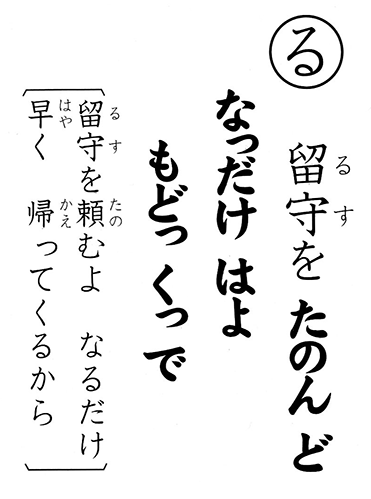 る
留守を たのん ど
なっだけ はよ
もどっ くっで
留守を頼むよ なるだけ
早く 帰ってくるから